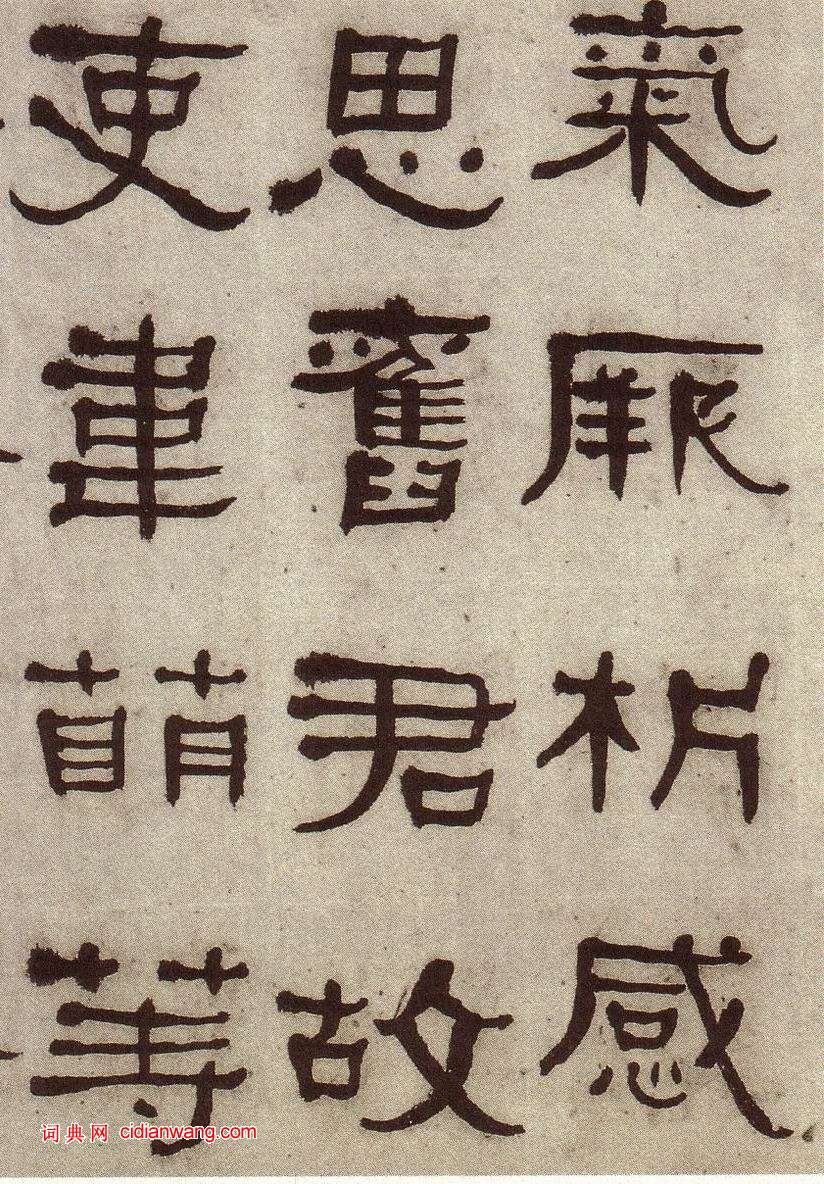 氣厥析感
思舊君故
吏韋萌等
词典网 cidianwang.com